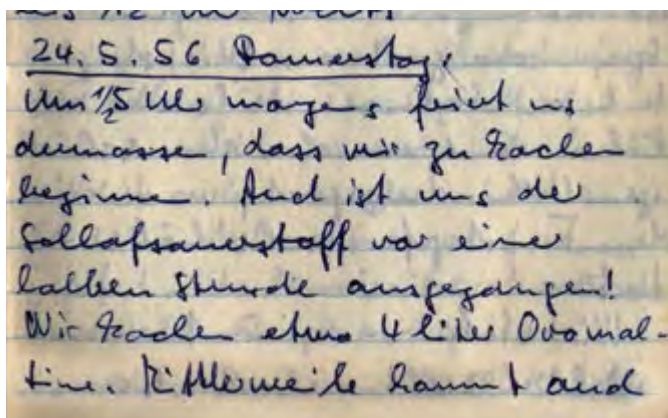 24.5.56 Donnerstag,
Um ½5 Uhr morgens friert uns
dermassen, dass wir zu kochen
beginnen. Auch ist uns der
Schlafsauerstoff vor einer
halben Stunde ausgegangen!
Wir kochen etwa 4 Liter Ovomal-
tine. Mittlerweile kommt auch